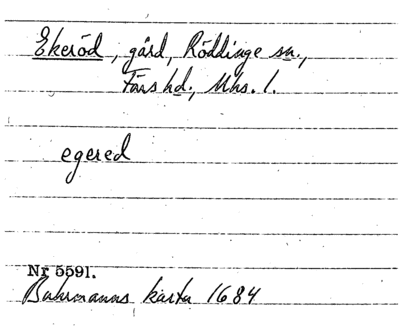 Ekeröd, gård, Röddinge sn.,
Färs hd., Mhs. l.
egered
Nr 5591.
Buhrmanns karta 1684